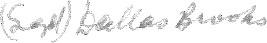 (Sgd) Dallas Brooks